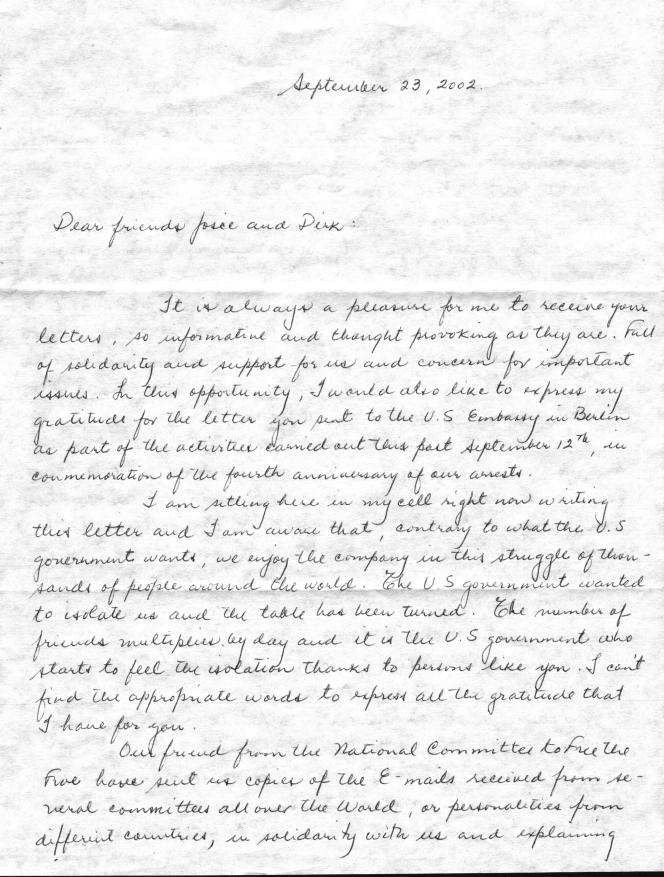 September 23, 2002.
Dear friends Josie and Dirk:
It is always a pleasure for me to receive your
letters, so informative and thought provoking as they are. Full
of solidarity and support for us and concern for important
issues. In this opportunity, I would also like to express my
gratitude for the letter you sent to the U.S Embassy in Berlin
as part of the activities carried out this past September 12th, in
conmemoration of the fourth anniversary of our arrests.
I am sitting here in my cell right now writing
this letter and I am aware that, contrary to what the U.S
government wants, we enjoy the company in this struggle of thou-
sands of people around the world. The U.S government wanted
to isolate us and the table has been turned. The number of
friends multiplies by day and it is the U.S government who
starts to feel the isolation thanks to persons like you. I can't
find the appropriate words to express all the gratitude that
I have for you.
Our friend from the National Committee to Free the
Five have sent us copies of the E-mails received from se-
veral committees all over the World, or personalities from
different countries, in solidarity with us and explaining